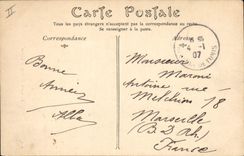 II
Carte Postale
Tous les pays étrangers n'acceptent pas la correspondance au recto.
Se renseigner à la poste.
Correspondance
Adresse
Bonne
Année
Monsieur
Antoine rue
18
Marseille
B D Rh
France
07